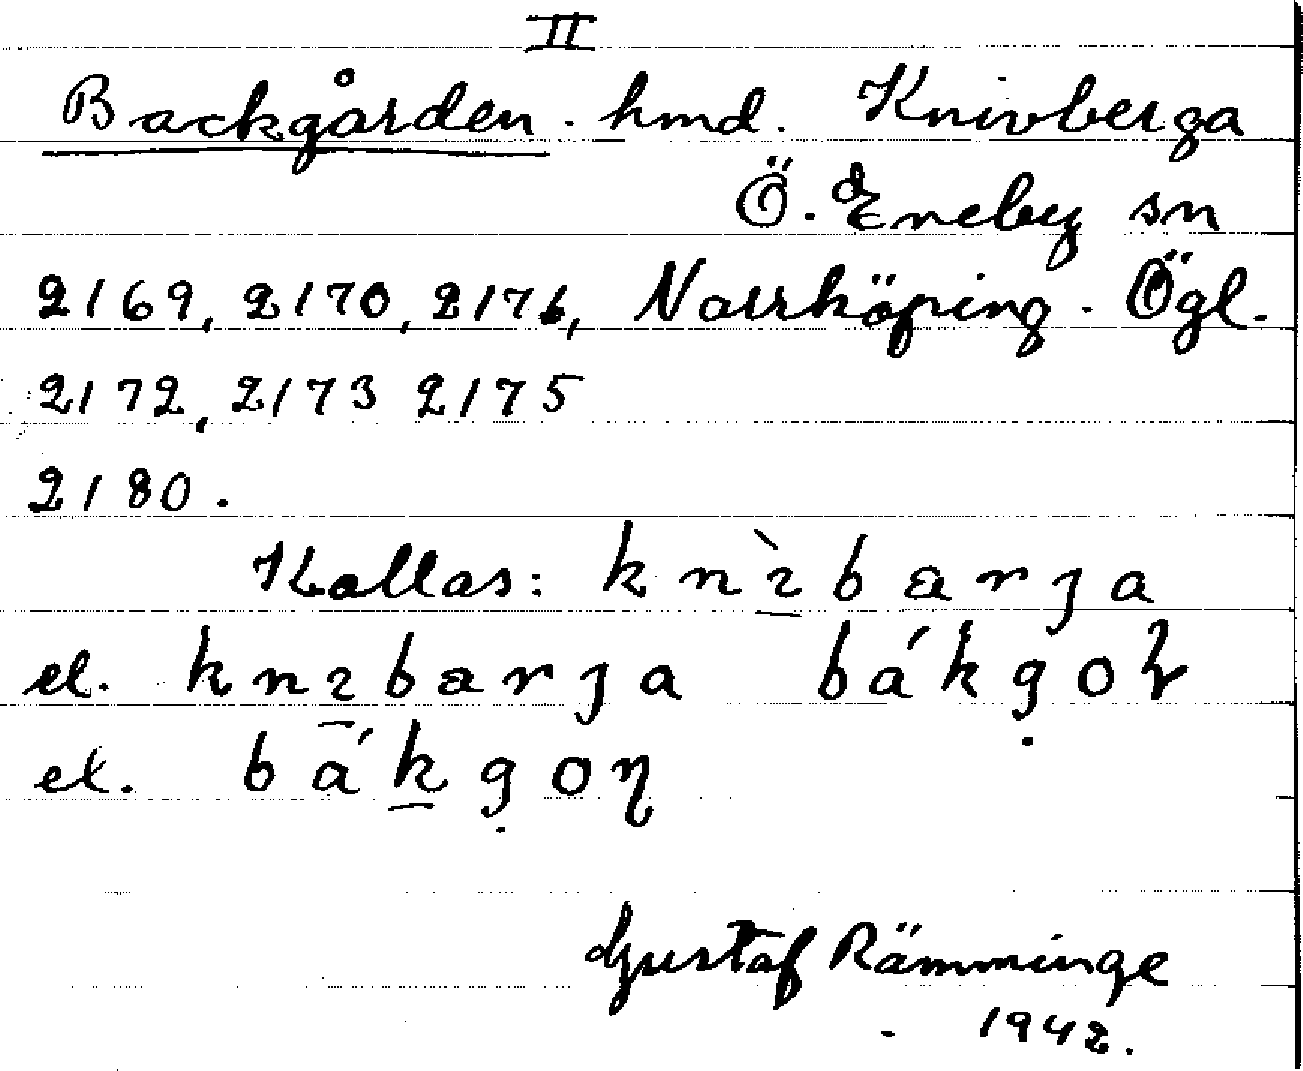 II
Backgården. hmd. Knivberga
Ö. Eneby sn
2169, 2170, 2171, Norrköping. Ögl.
2172, 2173 2175
2180.
Kallas:
el.
el.
Gustaf Rämminge
1942.